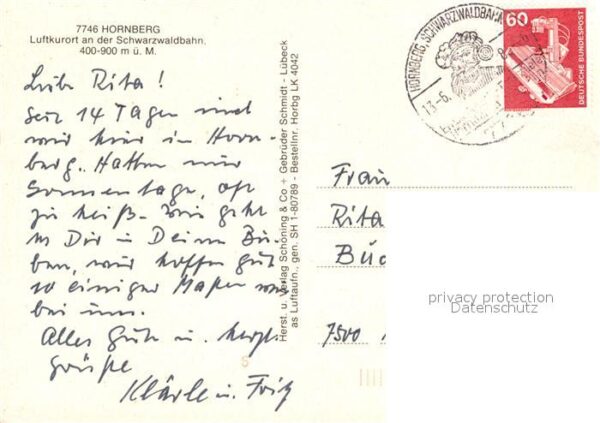 7746 HORNBERG
Luftkurort an der Schwarzwaldbahn,
400-900 m ü. M.
Liebe Rita!
Seit 14 Tagen sind
wir hier in Horn-
berg. Hatten nur
Sonnentage, oft
zu heiß. Wie geht
es Dir in Deinem
wir hoffen gut
so einiger Maßen wie
bei uns.
Alles Gute u. herzl.
Grüße
Klärle u. Fritz
Herst. u. Verlag Schöning & Co + Gebrüder Schmidt - Lübeck
as Luftaufn., gen. SH 1-80789 - Bestellnr. Horbg LK 4042
HORNBERG, SCHWARZWALDBAHN
13.-6.
60
DEUTSCHE BUNDESPOST
Frau
Rita
Büc
7500
privacy protection
Datenschutz